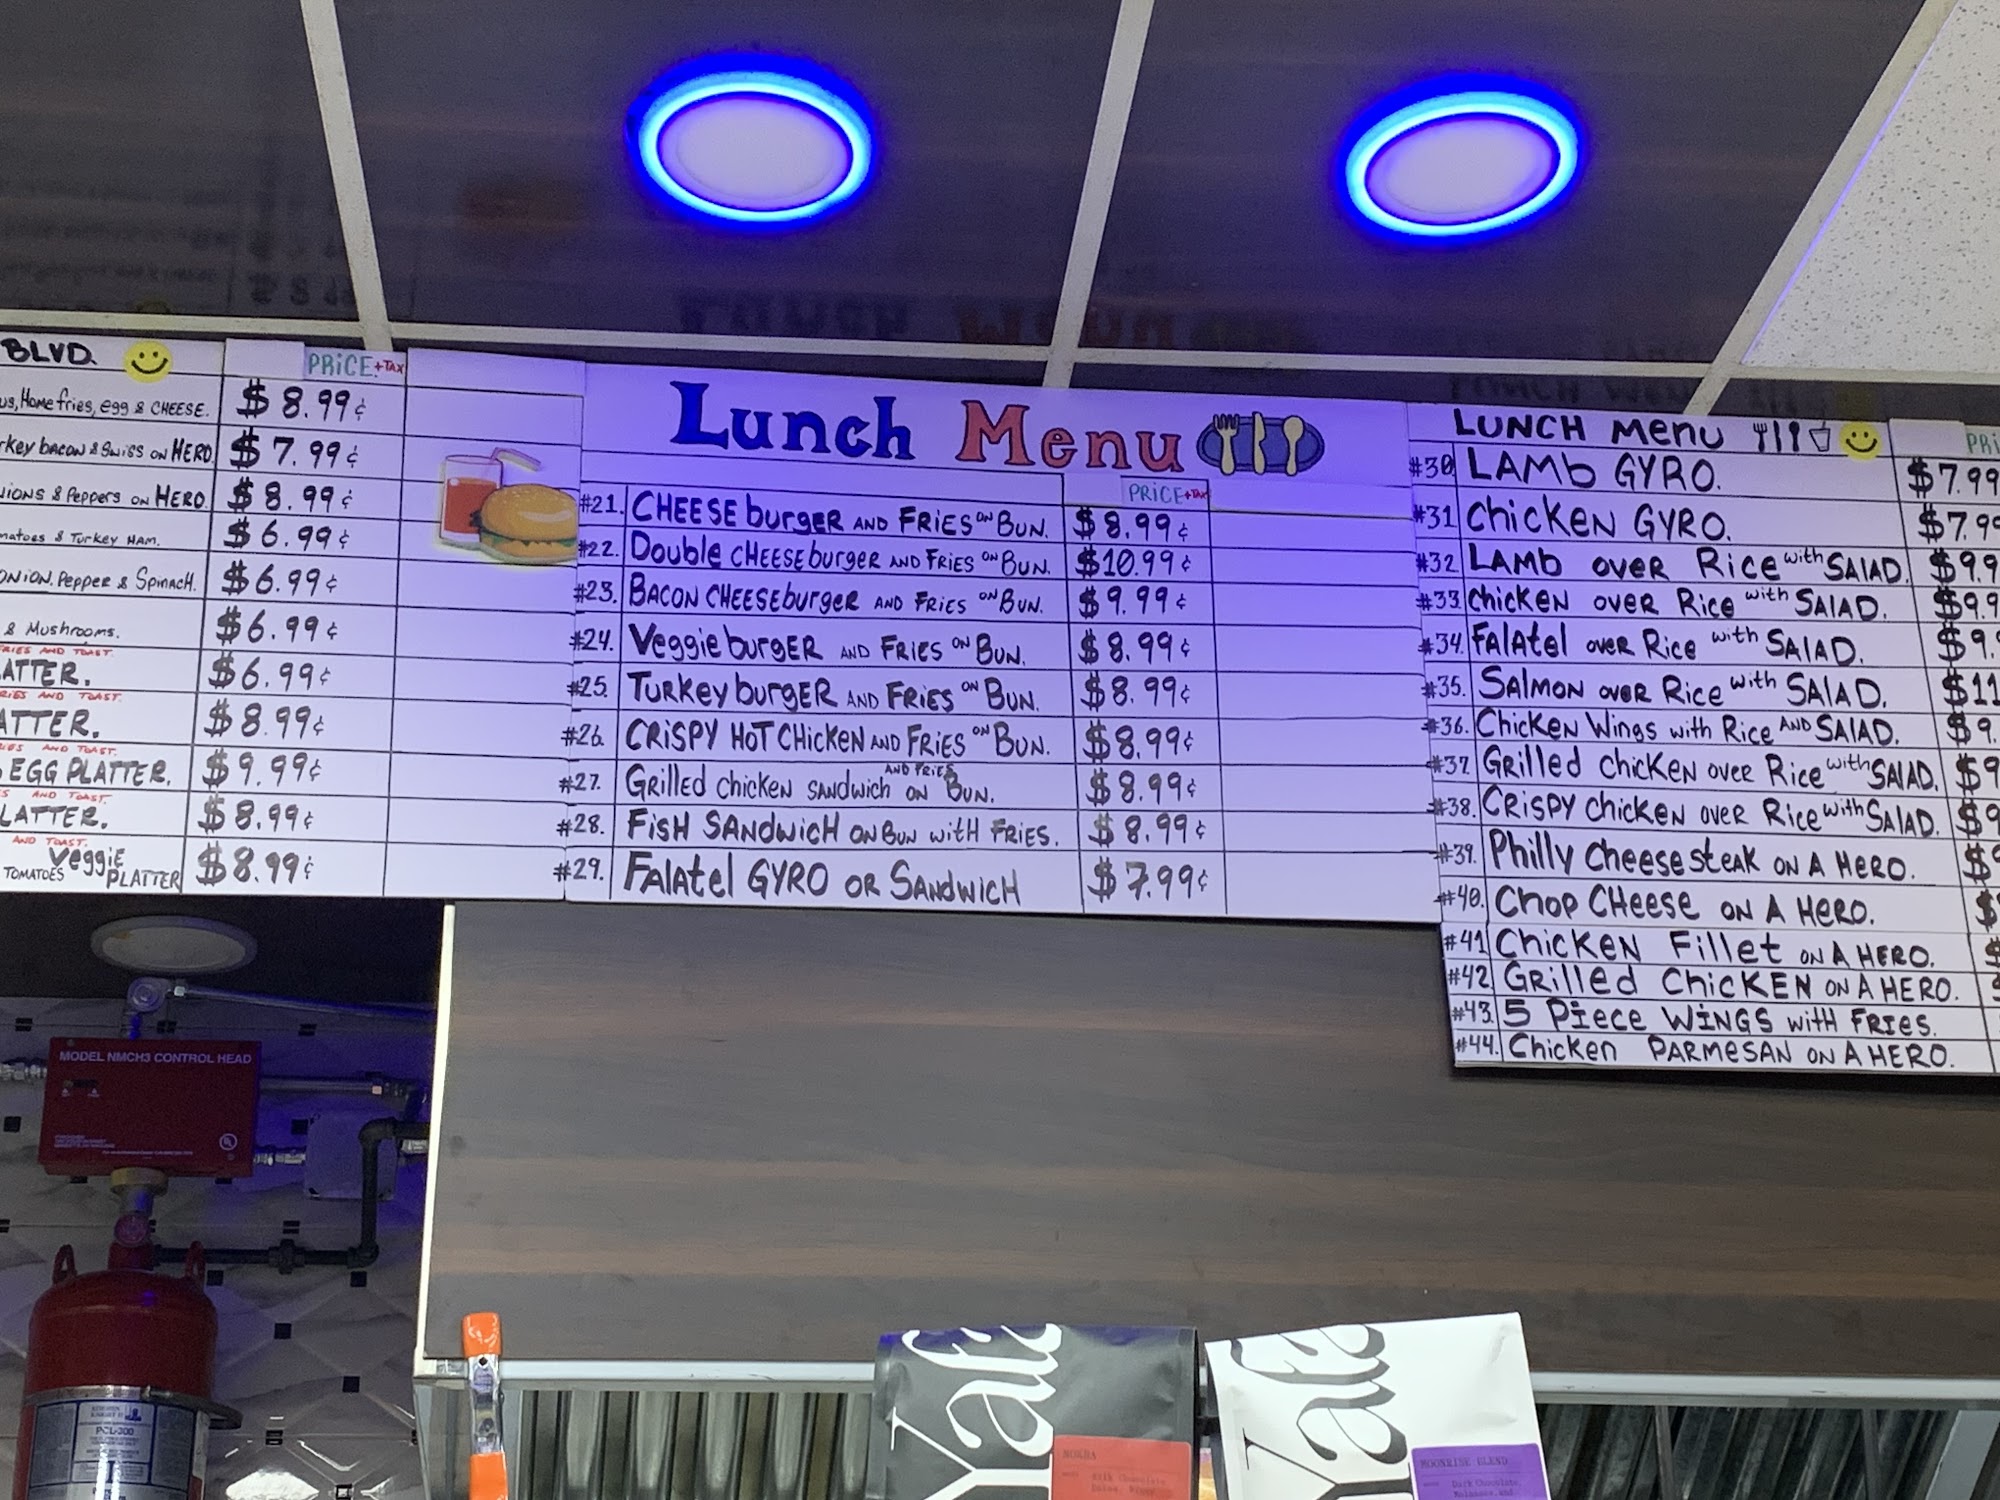 BLVD.
PRICE + TAX
Home fries, egg & CHEESE. $8.99¢
BACON & SWISS ON HERO $7.99¢
& Peppers ON HERO $8.99¢
& Turkey HAM. $6.99¢
ONION, Pepper & Spinach. $6.99¢
& Mushrooms. $6.99¢
AND TOAST.
$6.99¢
AND TOAST.
$8.99¢
AND TOAST.
EGG PLATTER. $9.99¢
AND TOAST.
$8.99¢
AND TOAST.
TOMATOES Veggie PLATTER $8.99¢
Lunch Menu
PRICE + TAX
#21. CHEESE burgER AND FRIES ON BUN. $8.99¢
#22. Double CHEESE burgER AND FRIES ON BUN. $10.99¢
#23. BACON CHEESE burgER AND FRIES ON BUN. $9.99¢
#24. Veggie burgER AND FRIES ON BUN. $8.99¢
#25. TURKey burgER AND FRIES ON BUN. $8.99¢
#26. CRISPY HOT CHicKEN AND FRIES ON BUN. $8.99¢
#27. GRilled chicken SANDwich AND FRIES ON BUN. $8.99¢
#28. FisH SANDwicH ON BUN witH FRIES. $8.99¢
#29. FAlAtel GYRO OR SANDwicH $7.99¢
LUNCH Menu
#30 LAMb GYRO. $7.99
#31 chicKEN GYRO. $7.99
#32 LAMb OVER Rice with SAlAD. $9.9
#33 chicKEN OVER Rice with SAlAD. $9.9
#34. FAlAtel OVER Rice with SAlAD. $9.
#35. SAlMON OVER Rice with SAlAD. $11
#36. Chicken Wings with Rice AND SAlAD. $9.
#37. GRilled chicKEN OVER Rice with SAlAD. $9
#38. CRISPY chicken OVER Rice with SAlAD. $9
#39. Philly cheese steaK ON A HERO. $9
#40. CHOP CHeese ON A HERO. $
#41 CHicKEN Fillet ON A HERO. $
#42 GRilled CHicKEN ON A HERO.
#43. 5 Piece WiNGS with FRIES.
#44. Chicken PARMESAN ON A HERO.
MODEL NMCH3 CONTROL HEAD
PCL-300
MOKHA
Milk Chocolate
MOONRISE BLEND
Dark Chocolate,
Molasses, and